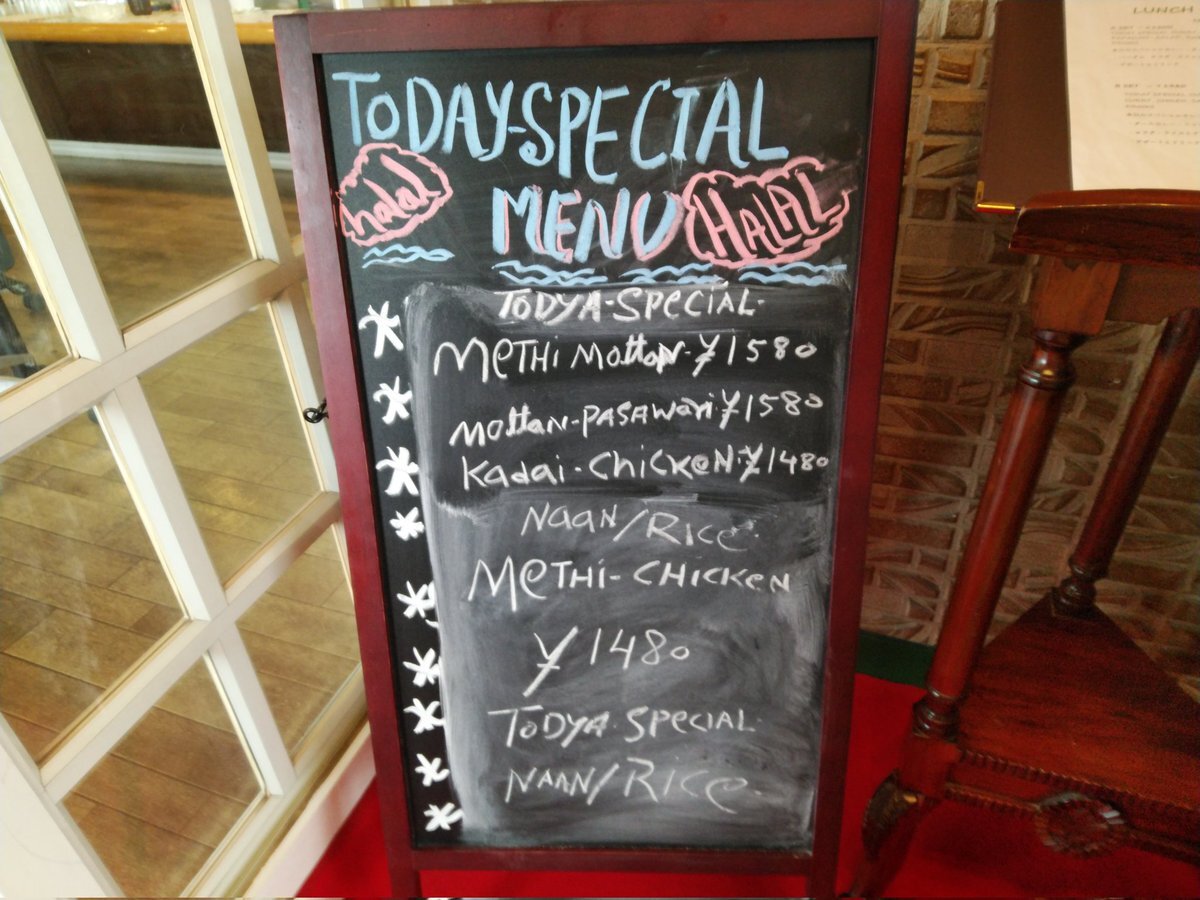 TODAY-SPECIAL
halal
MENU
HALAL
TODYA-SPECIAL-
METHI MOTTON-¥1580
MOTTAN-PASAWARI ¥1580
KADAI-CHICKEN-¥1480
NAAN/RICE.
METHI-CHICKEN
¥1480
TODYA-SPECIAL-
NAAN/RICE.
LUNCH